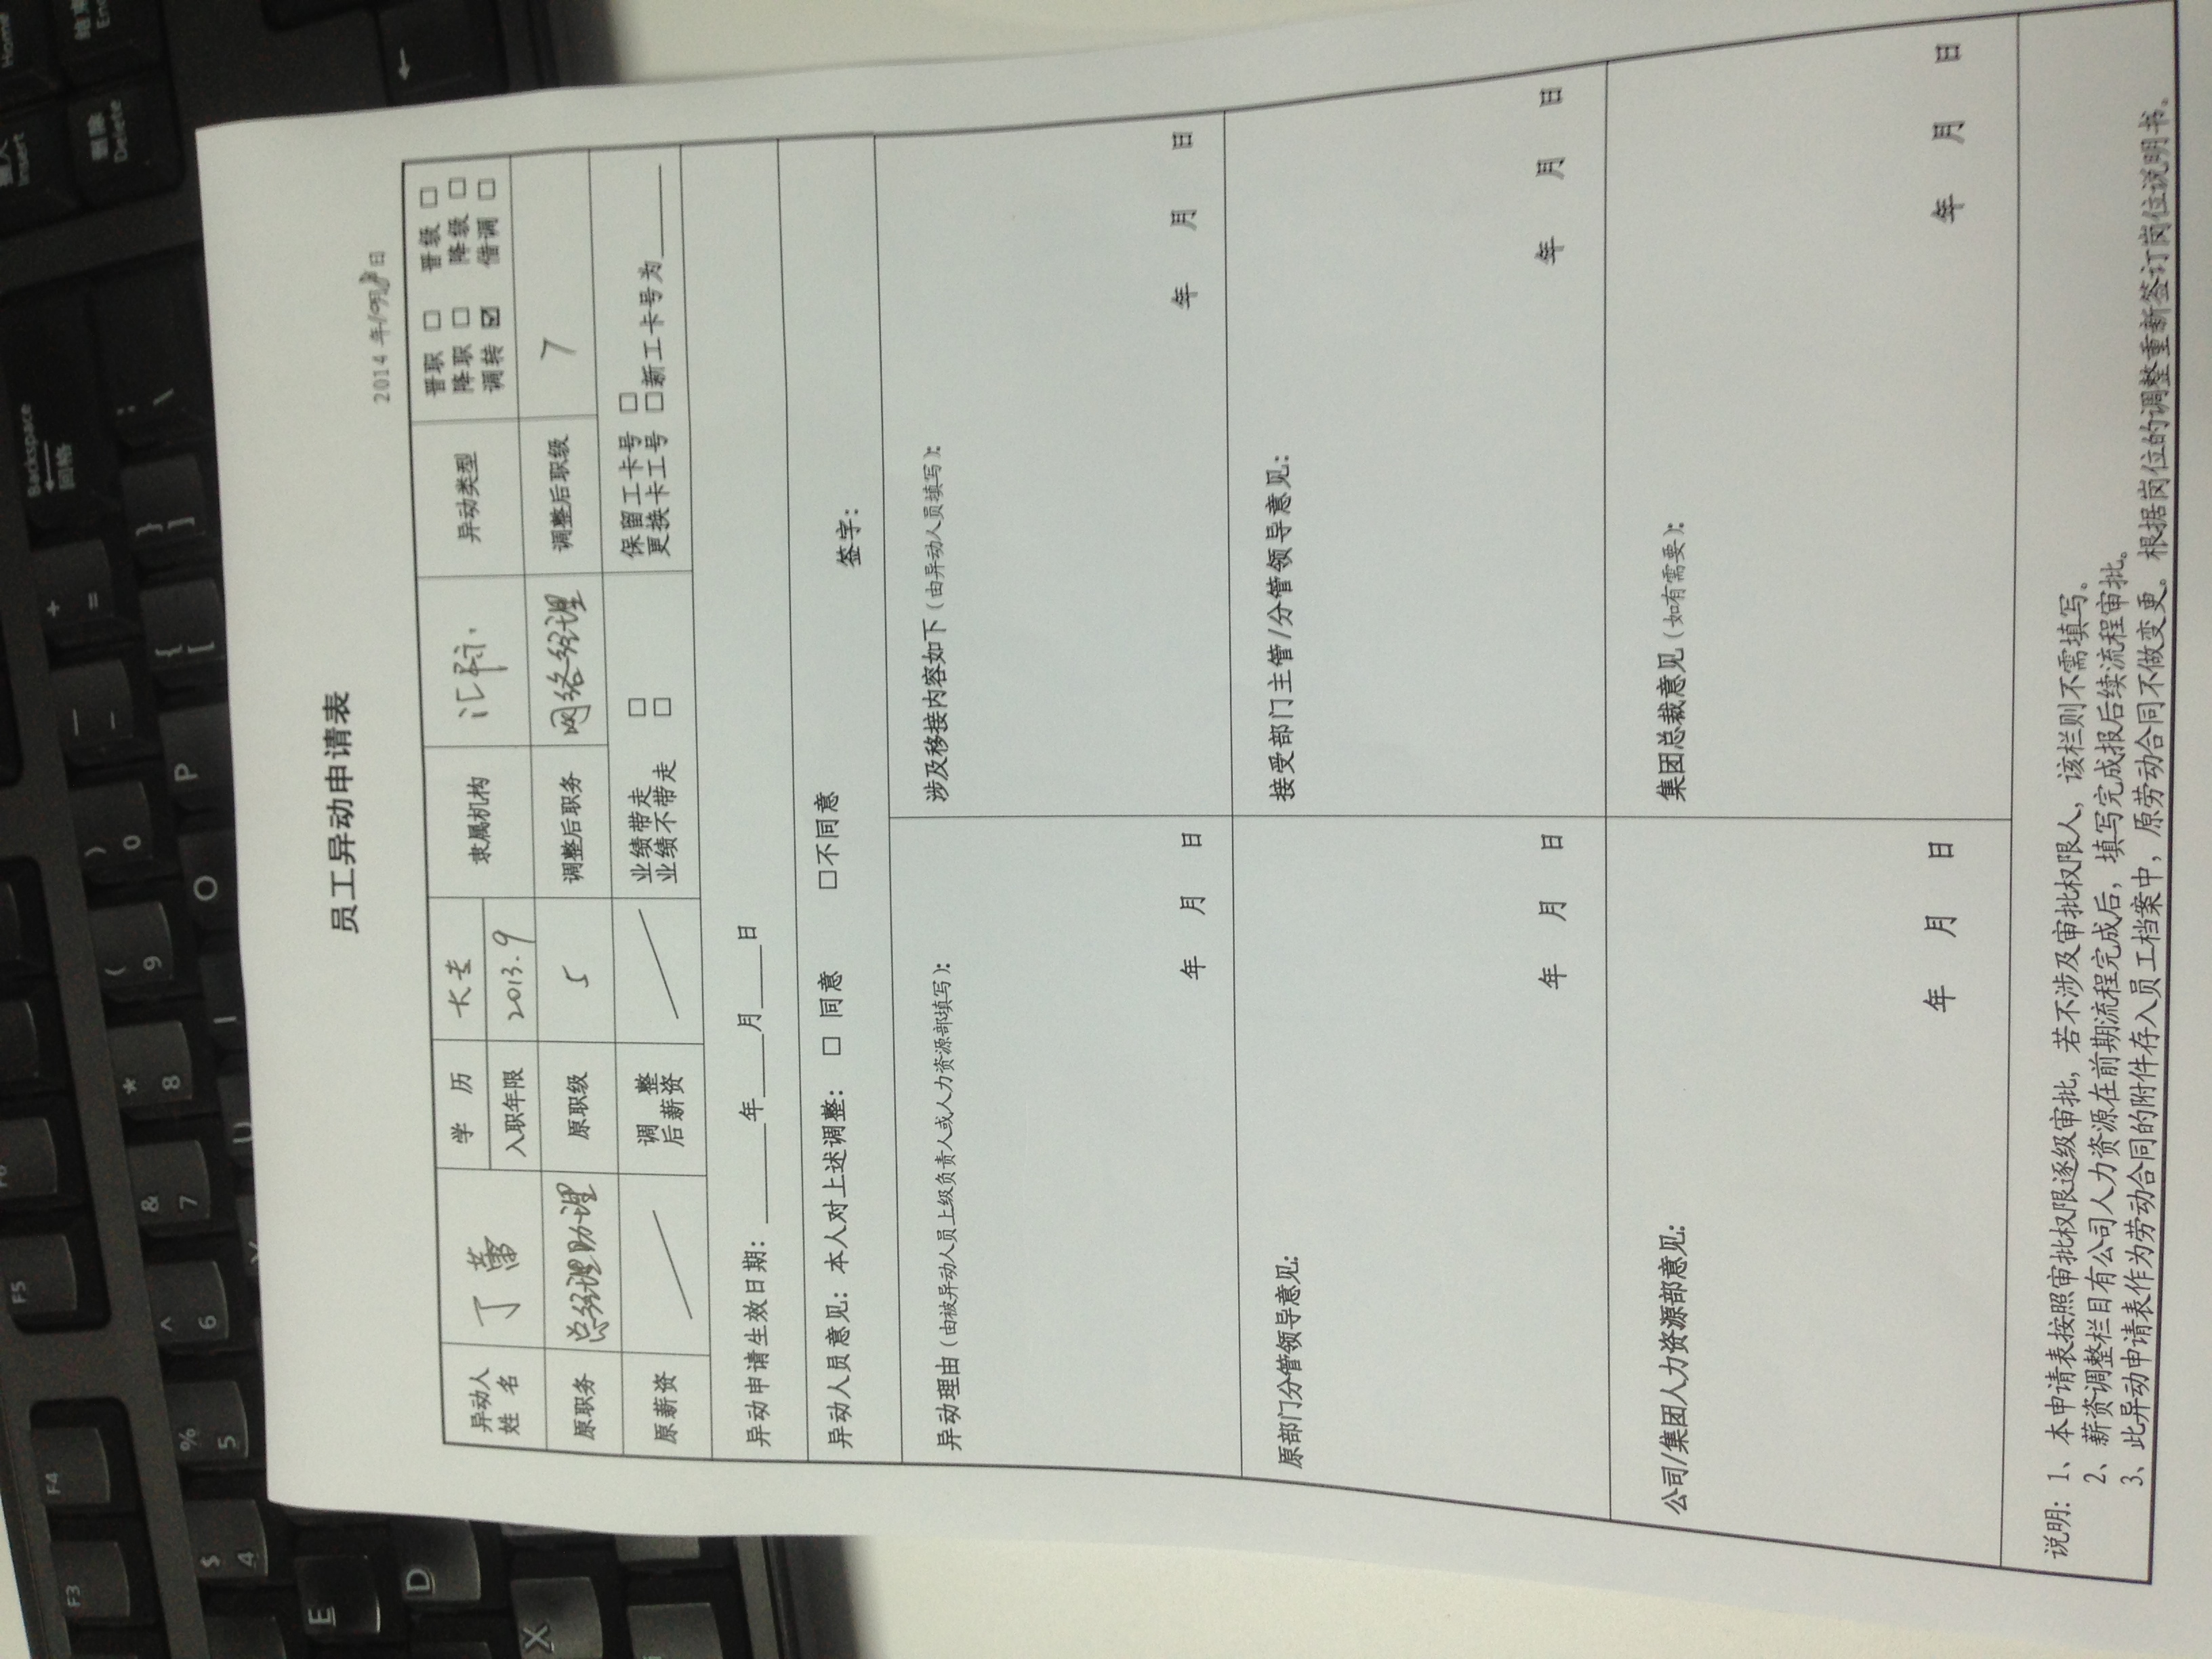 F3 F4 F5 F6
Backspace
回格
Insert
Home
删除
Delete
结束
End
$ 4 % 5 ^ 6 & 7 * 8 ( 9 ) 0 — - + =
E U I O P { [ } ] \
D
X
员工异动申请表
2014 年10月8日
异动人姓名 丁蕾 学 历 大专 隶属机构 异动类型 晋职 □ 晋级 □
降职 □ 降级 □
入职年限 2013.9 调转 ☑ 借调 □
原职务 总经理助理 原职级 5 调整后职务 网络经理 调整后职级 7
原薪资 调 整后薪资 业绩带走 □ 保留工卡号 □
业绩不带走 □ 更换卡工号 □新工卡号为______
异动申请生效日期：______年____月____日
异动人员意见：本人对上述调整： □ 同意 □不同意 签字：
异动理由（由被异动人员上级负责人或人力资源部填写）： 涉及移接内容如下（由异动人员填写）：
年 月 日 年 月 日
原部门分管领导意见： 接受部门主管/分管领导意见：
年 月 日 年 月 日
公司/集团人力资源部意见： 集团总裁意见（如有需要）：
年 月 日 年 月 日
说明：1、本申请表按照审批权限逐级审批，若不涉及审批权限人，该栏则不需填写。
2、薪资调整栏目有公司人力资源在前期流程完成后，填写完成报后续流程审批。
3、此异动申请表作为劳动合同的附件存入员工档案中，原劳动合同不做变更。根据岗位的调整重新签订岗位说明书。